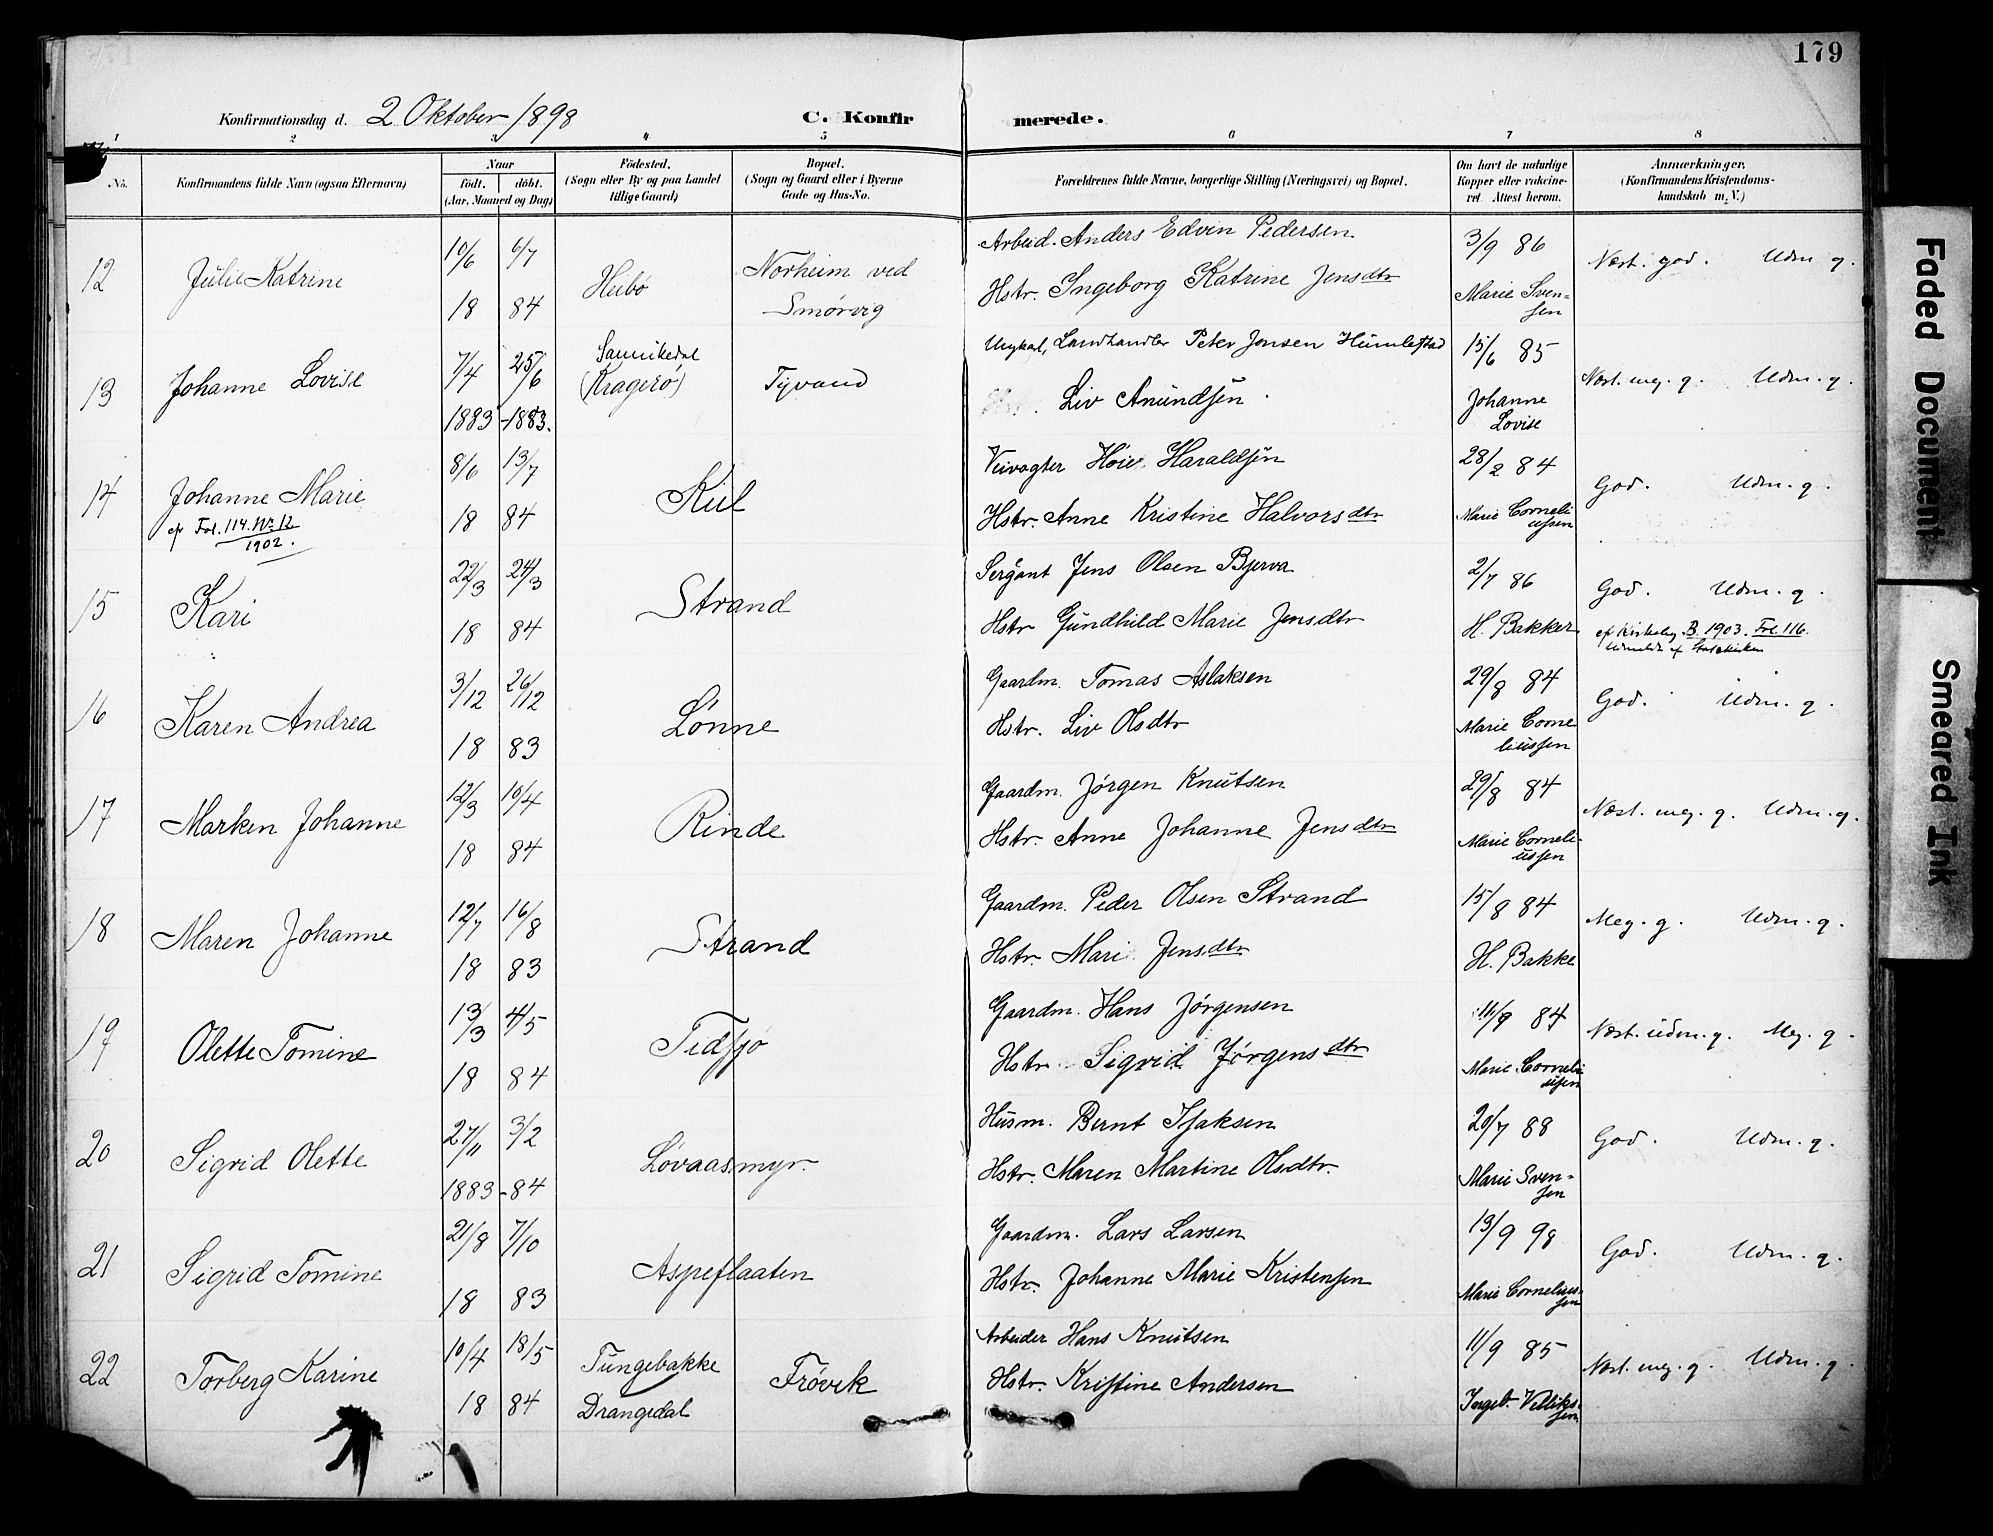 179
Konfirmationsdag d. 2 Oktober 1898 C. Konfir merede.
1 2 3 4 5 6 7 8
No.
Konfirmandens fulde Navn (ogsaa Efternavn)
Naar
født. døbt.
(Aar, Maaned og Dag)
Fødested.
(Sogn eller By og paa Landet
tillige Gaard)
Bopæl.
(Sogn og Gaard eller i Byerne
Gade og Hus-No.
Forældrenes fulde Navne, borgerlige Stilling (Næringsvei) og Bopæl.
Om havt de naturlige
Kopper eller vakcine-
ret. Attest herom.
Anmærkninger.
(Konfirmandens Kristendoms-
kundskab m. V.)
12 Julie Katrine 10/6 18 6/7 84 Heibø Norheim ved Smørvig
Arbeid. Anders Edvin Pedersen
Hstr. Ingeborg Katrine Jensdtr
3/9 86 Marie Svensen
Næst. god. Udm. g.
13 Johanne Lovise 7/4 1883 25/6 -1883. Sannikedal (Kragerø) Tyvand
Landhandler Peter Jensen Humlestad
Liv Anundsen.
15/6 85 Johanne Lovise
Næst. meg. g. Udm. g.
14 Johanne Marie 8/6 18 13/7 84 Kil
cfr Fol. 114. Nr. 12
1902.
Veivogter Høie Haraldsen
Hstr. Anne Kristine Halvorsdtr
28/2 84 Marie Corneliussen
God. Udm. g.
15 Kari 22/3 18 24/3 84 Strand
Sergant Jens Olsen Bjerva
Hstr Gundhild Marie Jensdtr
2/7 86 H. Bakker
God. Udm. g.
cf Kirkebog B. 1903. Fol. 116.
Udmeldt af Statskirken
16 Karen Andrea 3/12 18 26/12 83 Lønne
Gaardm. Tomas Aslaksen
Hstr. Liv Olsdtr
29/8 84 Marie Corneliussen
God. Udm. g.
17 Marken Johanne 12/3 18 10/4 84 Rinde
Gaardm. Jørgen Knutsen
Hstr. Anne Johanne Jensdtr
29/8 84 Marie Corneliussen
Næst. meg. g. Udm. g.
18 Maren Johanne 12/7 18 16/8 83 Strand
Gaardm. Peder Olsen Strand
Hstr. Mari Jensdtr
15/8 84 H. Bakke
Meg. g. Udm. g.
19 Olette Tomine 13/3 18 4/5 84 Tidsjø
Gaardm. Hans Jørgensen
Hstr Sigrid Jørgensdtr
11/9 84 Marie Corneliussen
Næst. udm. g. Meg. g.
20 Sigrid Olette 27/11 1883 3/2 -84 Løvaasmyr.
Husm. Bernt Isaksen
Hstr. Maren Martine Olsdtr.
20/7 88 Marie Svensen
God. Udm. g.
21 Sigrid Tomine 21/8 18 7/10 83 Aspeflaaten
Gaardm. Lars Larsen
Hstr. Johanne Marie Kristensen
13/9 98 Marie Corneliussen
God. Udm. g.
22 Torberg Karine 10/4 18 18/5 84 Tungebakke Drangedal Frøvik
Arbeider Hans Knutsen
Hstr. Kristine Andersen
11/9 85 Ingeb.
Næst. meg. g. Udm. g.
Faded Document
Smeared Ink